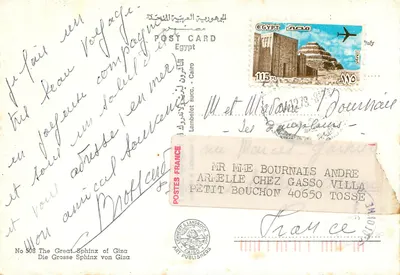 je fais un
très beau voyage
en joyeuse compagnie
et sous un soleil d'or
et vous adresse, en mer
mon amical souvenir
جمهورية مصر العربية
POST CARD
Egypt
Lehnert & Landrock succ. - Cairo
EGYPT
115
١١٥
M et Madame Bournais
France
POSTES FRANCE
MR MME BOURNAIS ANDRE
ARMELLE CHEZ GASSO VILLA
PETIT BOUCHON 40650 TOSSE
No 508 The Great Sphinx of Giza
Die Grosse Sphinx von Giza